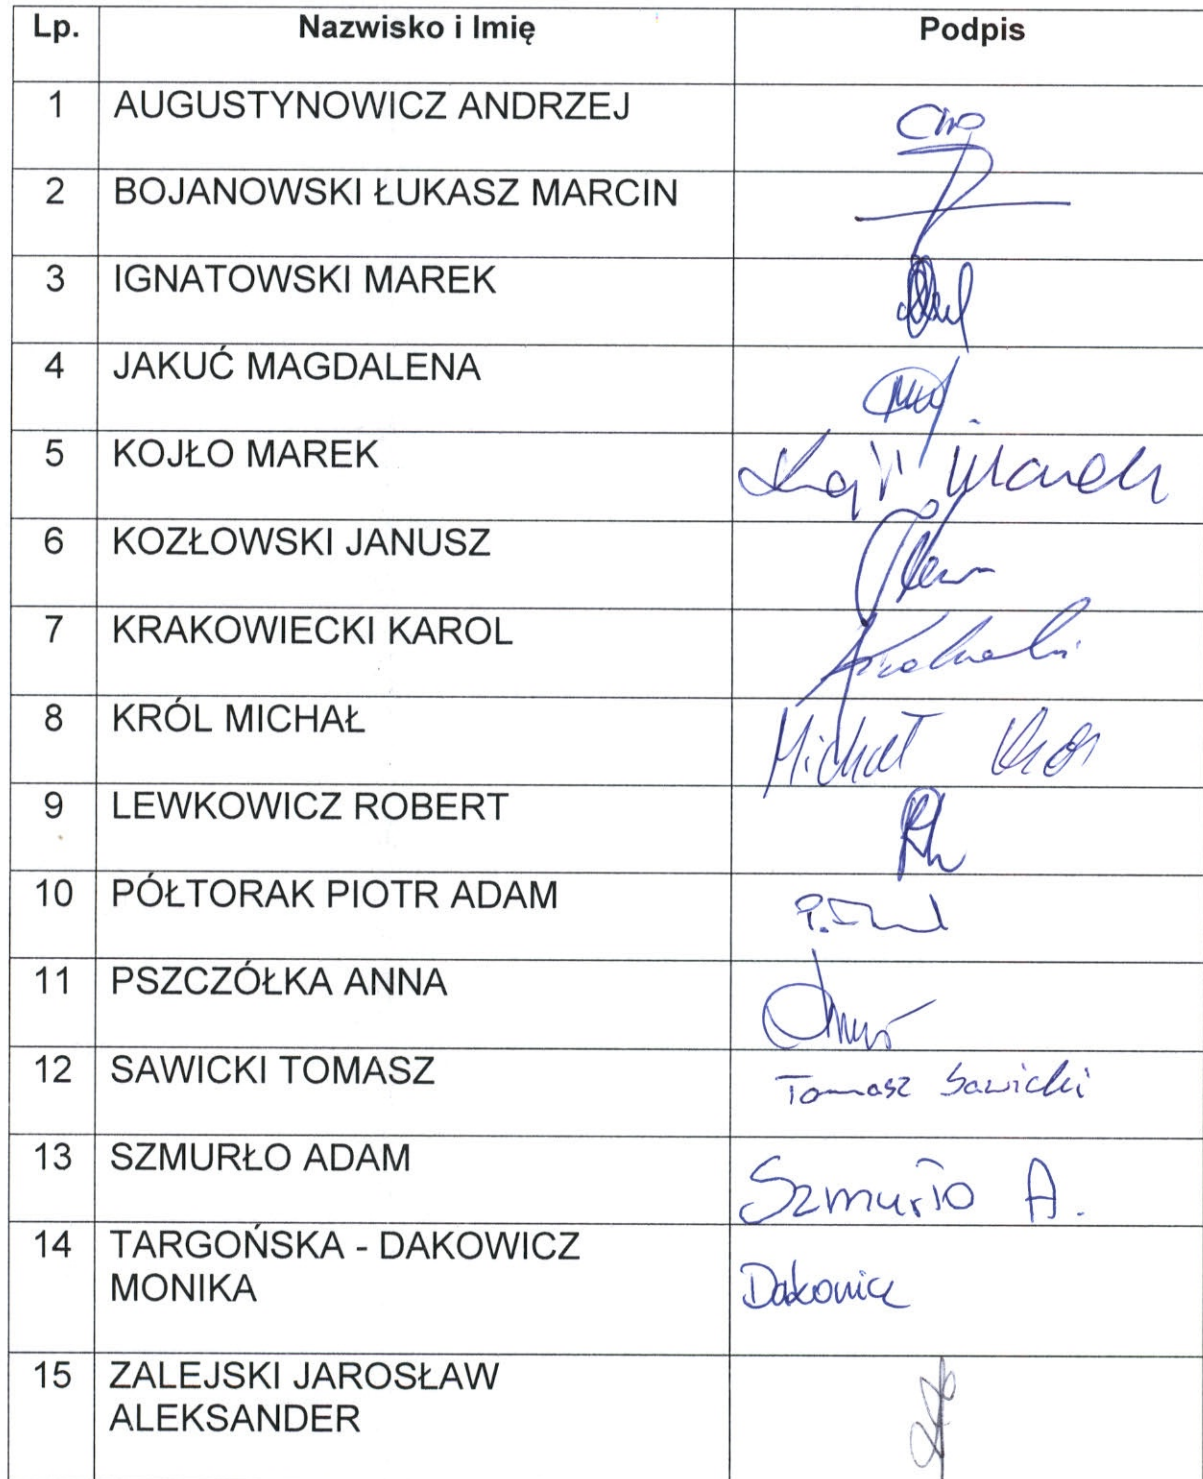 Lp. Nazwisko i Imię Podpis
1 AUGUSTYNOWICZ ANDRZEJ
2 BOJANOWSKI ŁUKASZ MARCIN
3 IGNATOWSKI MAREK
4 JAKUĆ MAGDALENA
5 KOJŁO MAREK Marek
6 KOZŁOWSKI JANUSZ
7 KRAKOWIECKI KAROL
8 KRÓL MICHAŁ Michał Król
9 LEWKOWICZ ROBERT
10 PÓŁTORAK PIOTR ADAM
11 PSZCZÓŁKA ANNA
12 SAWICKI TOMASZ Tomasz Sawicki
13 SZMURŁO ADAM Szmurło A.
14 TARGOŃSKA - DAKOWICZ
MONIKA Dakowicz
15 ZALEJSKI JAROSŁAW
ALEKSANDER